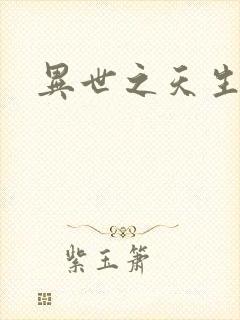 異世之天生
紫玉簫